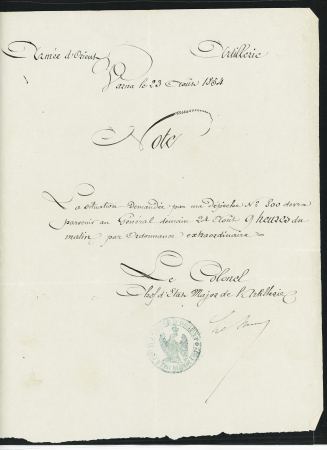 Armée d'Orient
Artillerie
Varna le 23 Août 1854
Note
La situation demandée par ma dépêche N° 800 devra
parvenir au Général demain 24 Août 9 heures du
matin par ordonnance extraordinaire
Le Colonel
Chef d'Etat Major de l'Artillerie